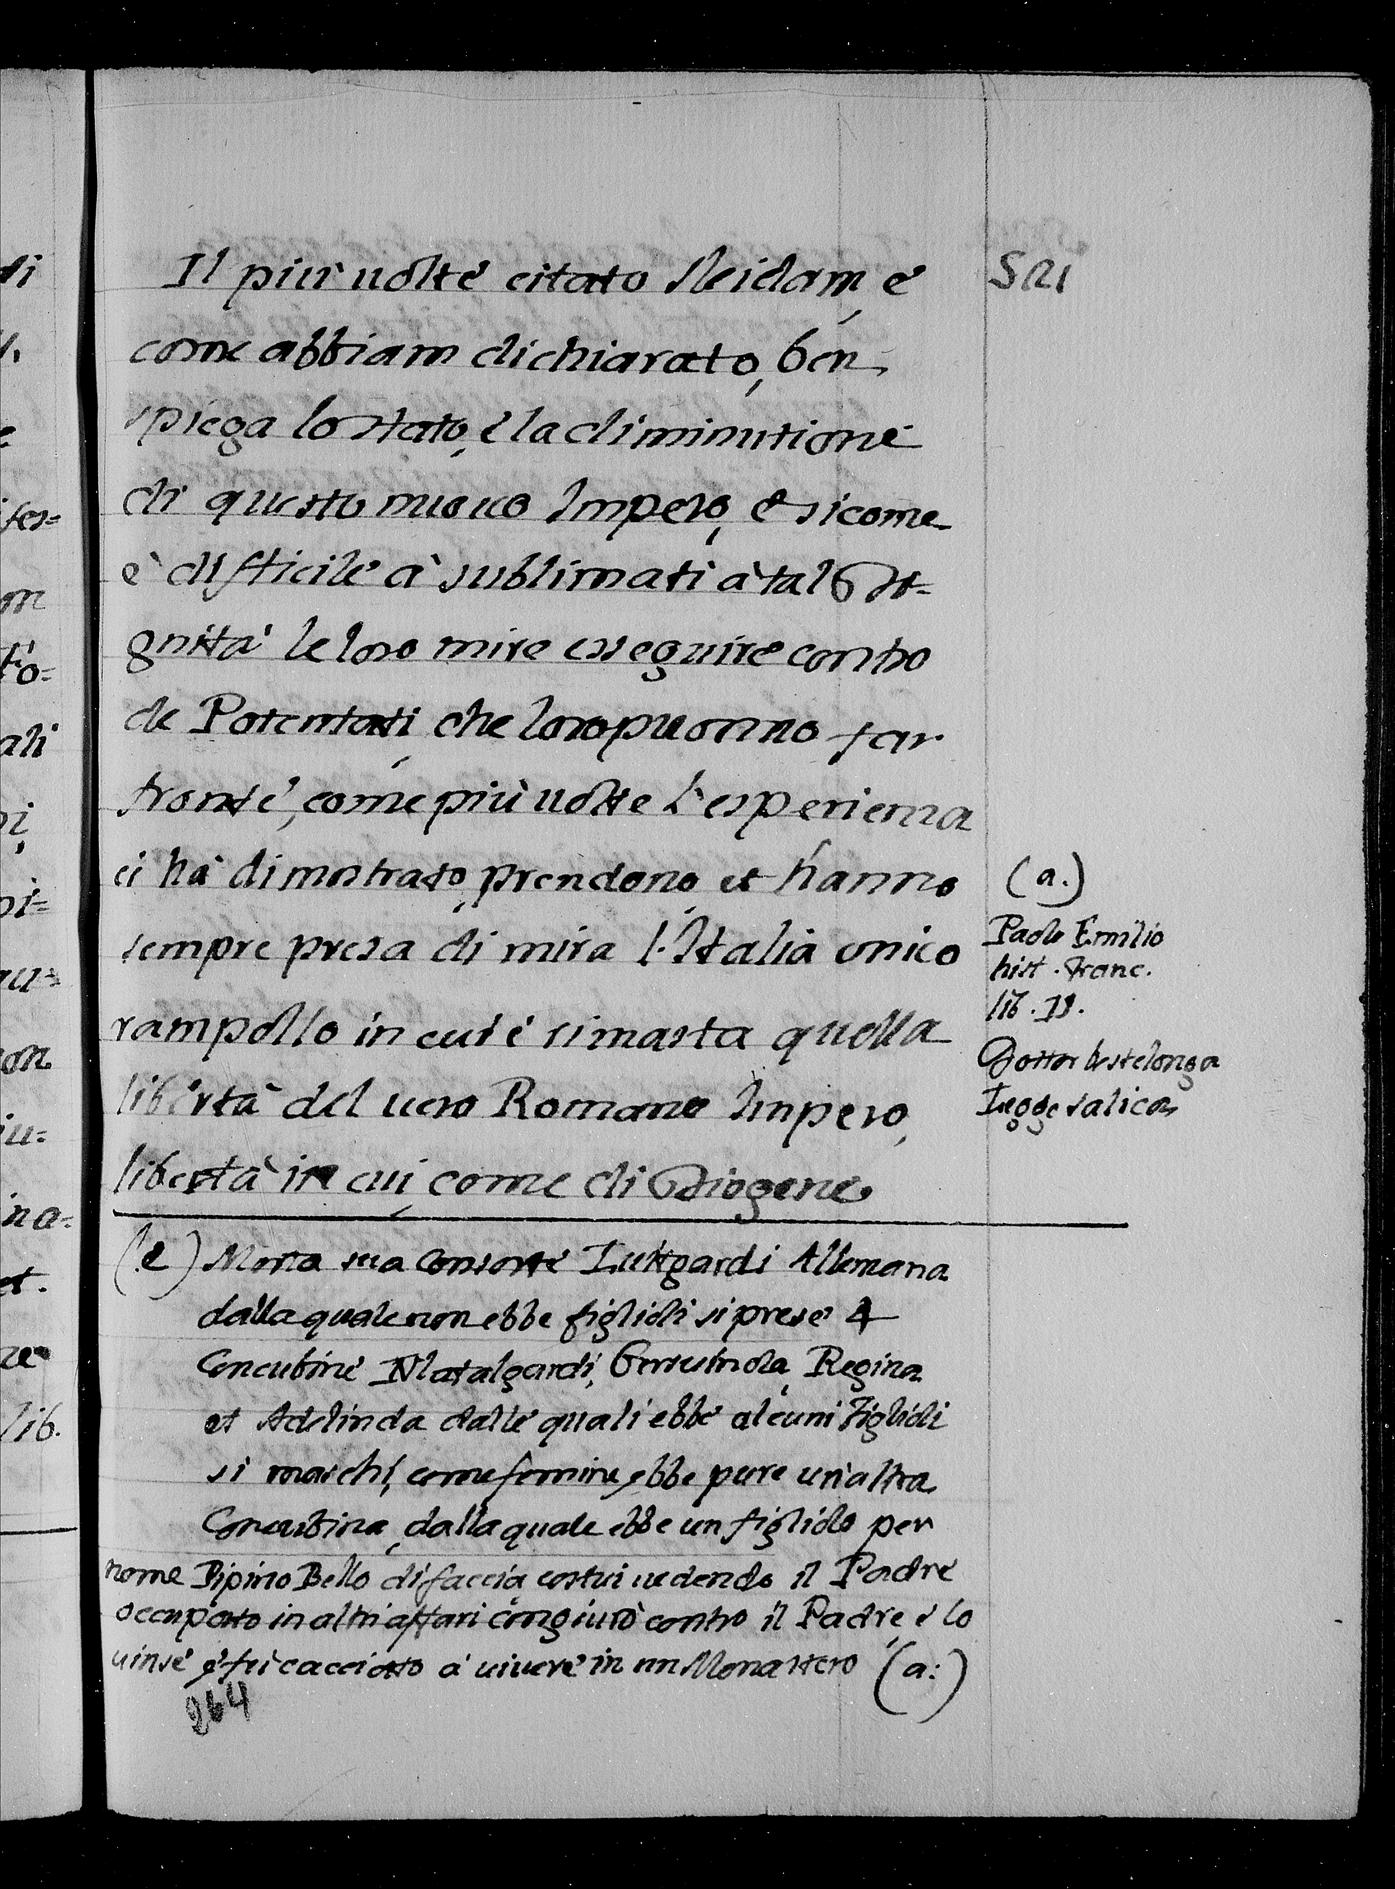 Il più uolte citato Sleidam, e
come abbiam dichiarato, ben
spiega lo stato, e la diminutione
di questo nuouo Impero, e sicome
è difficile à sublimati à tal Di-
gnità le loro mire esseguire contro
de Potentati, che loro puonno far
fronte, come più uolte l'esperienza
ci hà dimostrato, prendono, et hanno
sempre presa di mira l'Italia unico
rampollo in cui è rimasta quella
libertà del uero Romano Impero,
libertà in cui, come di Diogene
(e) Morta sua Consorte Luttgardi Allemana
dalla quale non ebbe figlioli si prese 4
Concubine Matalgardi, Gersuinda, Regina
et Adelinda dalle quali ebbe alcuni Figlioli
si maschi, come femine, ebbe pure un'altra
Concubina, dalla quale ebbe un figliolo per
nome Pipino Bello di faccia costui uedendo il Padre
occupato in altri affari congiurò contro il Padre, e lo
uinse e fù cacciato à uiuere in un Monastero (a:)
264
521
(a.)
Paolo Emilio
hist. Franc.
lib.
Dottor
Legge salica